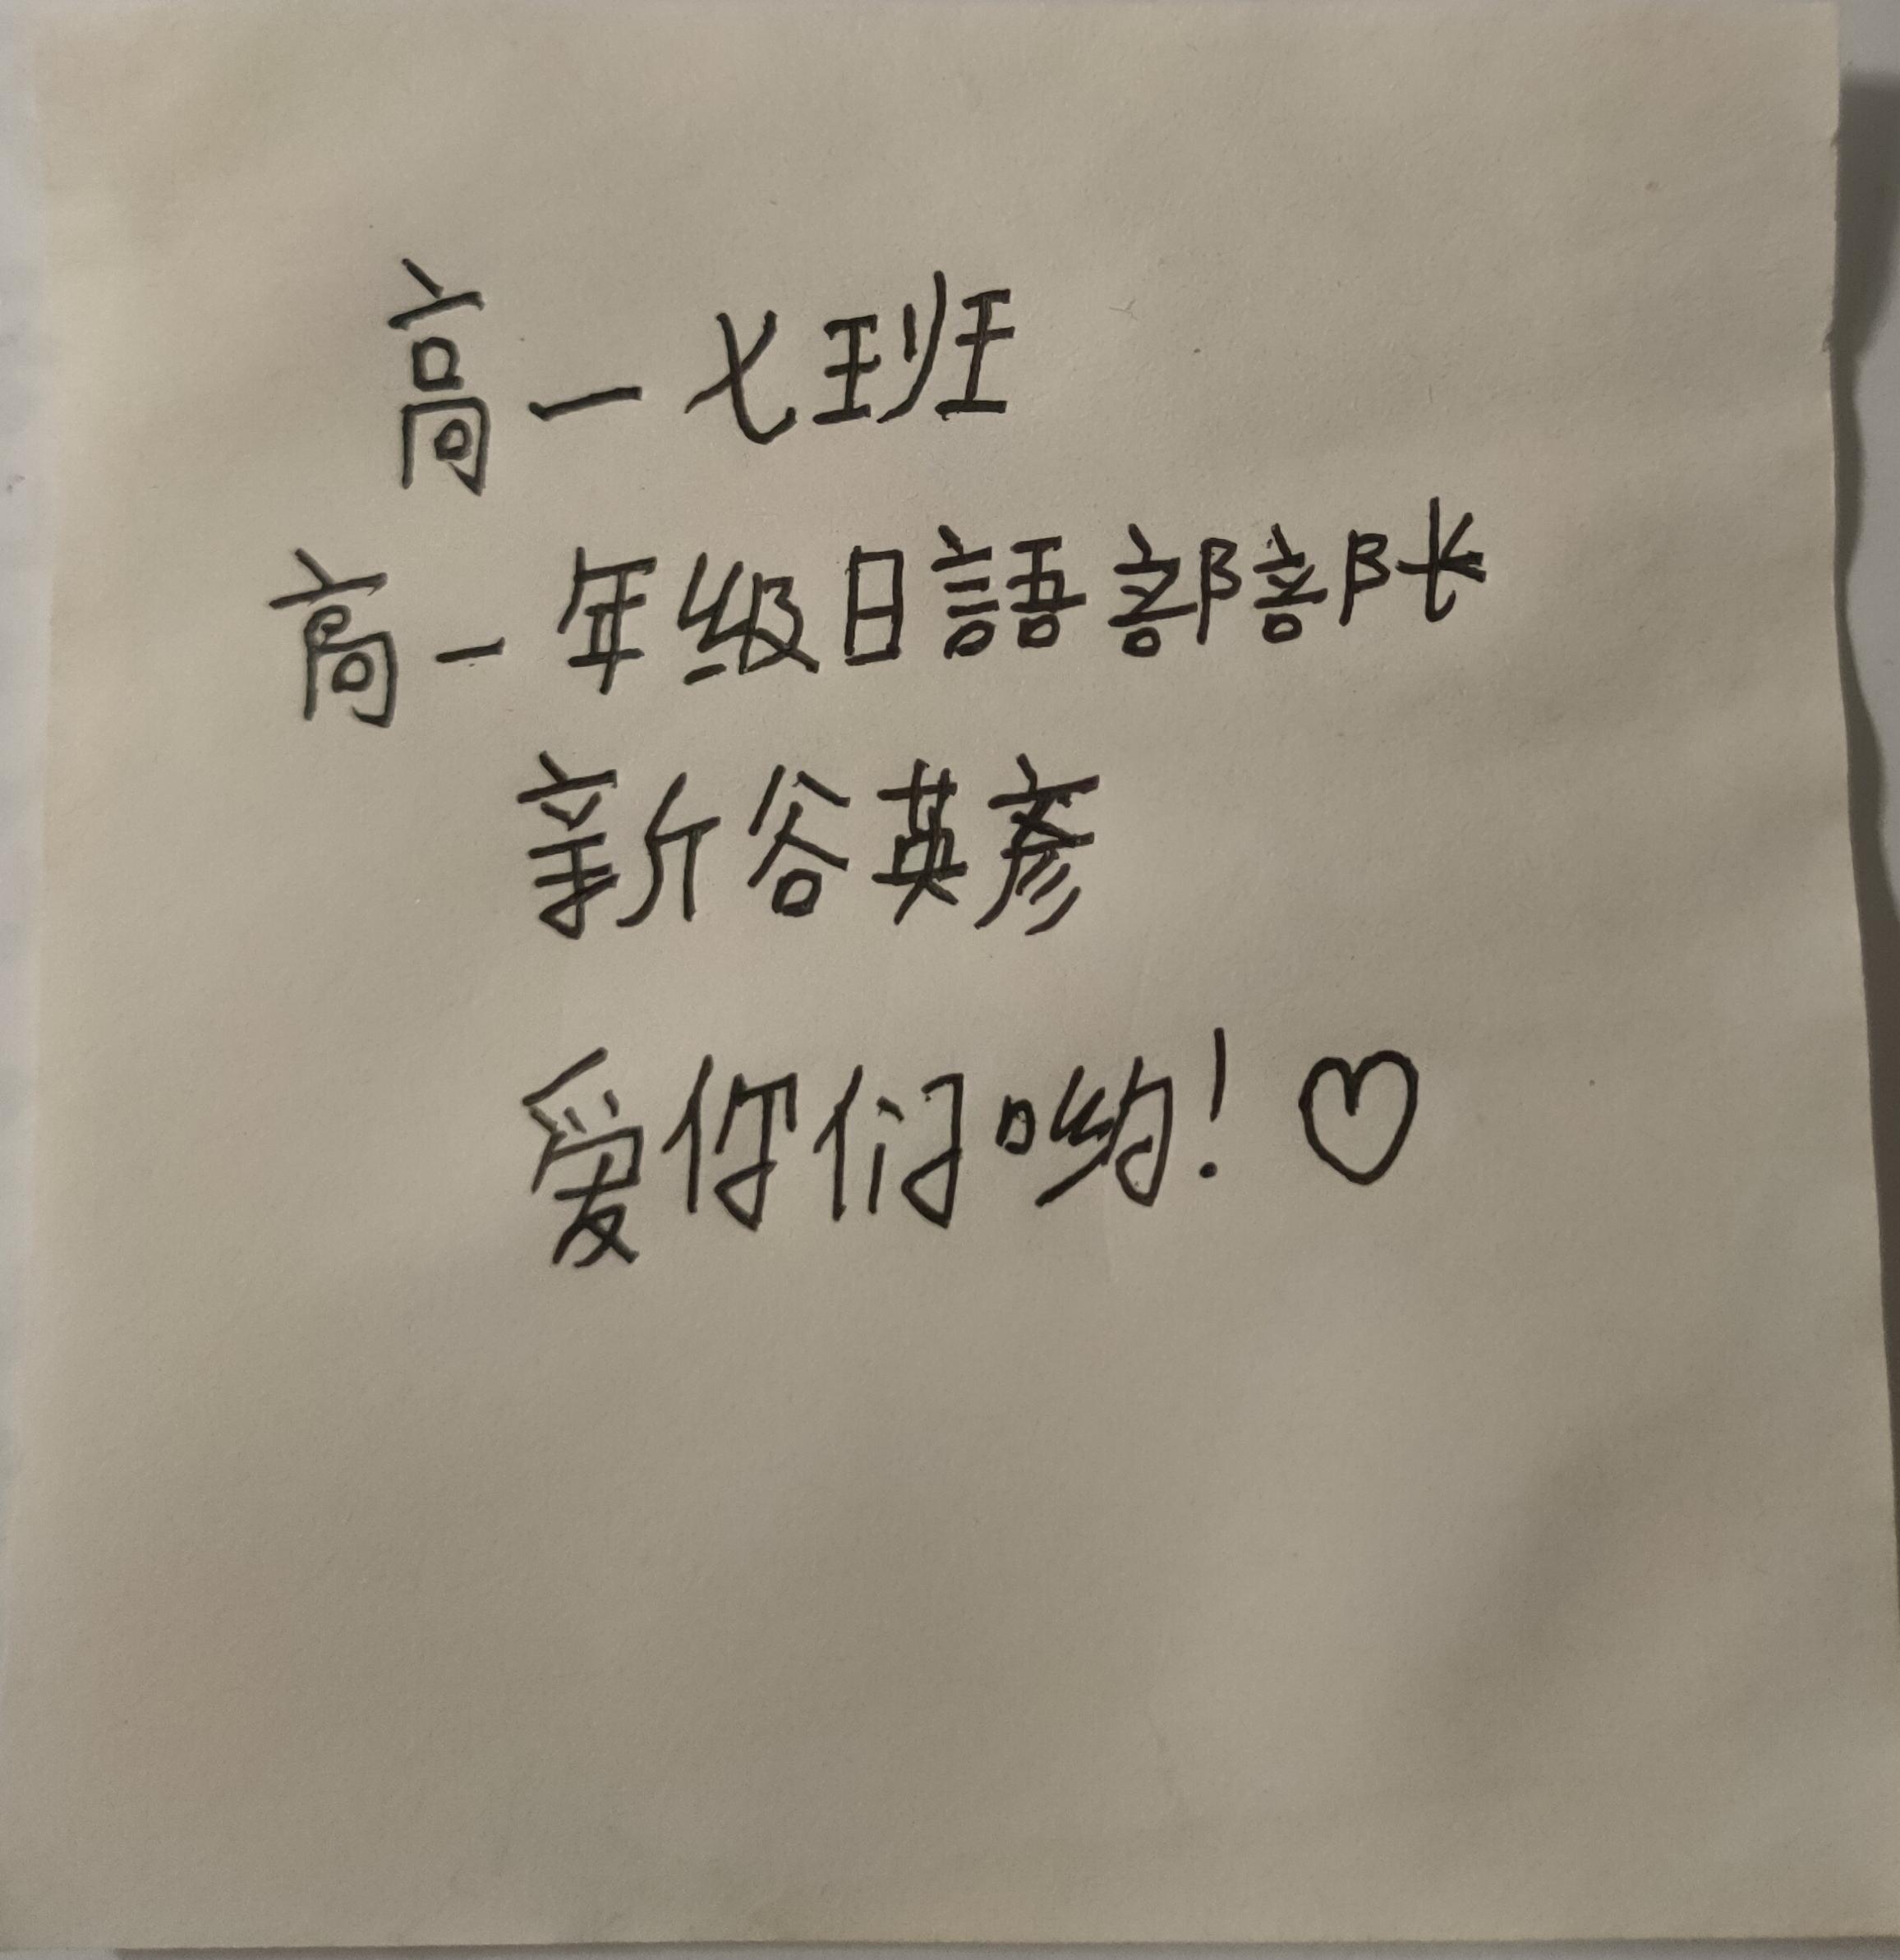 高一七班
高一年级日語部部长
新谷英彦
爱你们哟！♡